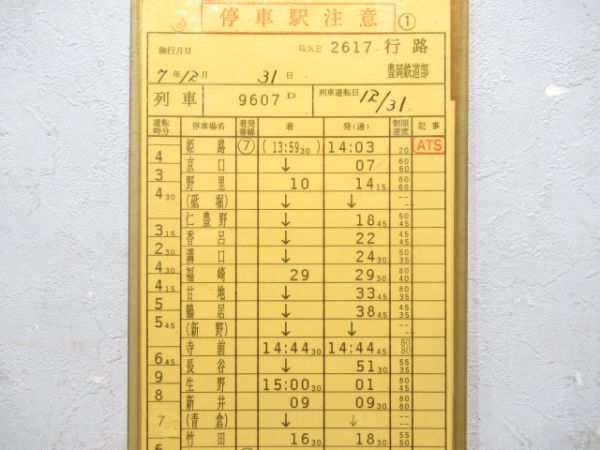 停車駅注意 ①
施行月日 2617 行路
7年12月 31日 豊岡鉄道部
列車 9607D 列車運転日 12/31
運転時分 停車場名 着発番線 着 発(通) 制限速度 記事
姫路 ⑦ (13:59 30) 14:03 20 ATS
4 京口 ↓ 07 60 60
3 野里 10 14 15 60 60
4 30 (砥堀) ↓ ↓ -- --
仁豊野 ↓ 18 45 50 45
3 15 香呂 ↓ 22 45 45
2 30 溝口 ↓ 24 30 50 35
4 30 福崎 29 29 30 80 40
4 15 甘地 ↓ 33 45 80 35
5 鶴居 ↓ 38 45 80 35
5 45 (新野) ↓ ↓ -- --
寺前 14:44 30 14:44 45 80 80
6 45 長谷 ↓ 51 30 55 35
9 生野 15:00 30 01 80 45
8 新井 09 09 30 80 40
7 (青倉) ↓ ↓ -- --
竹田 16 30 18 30 55 50
6